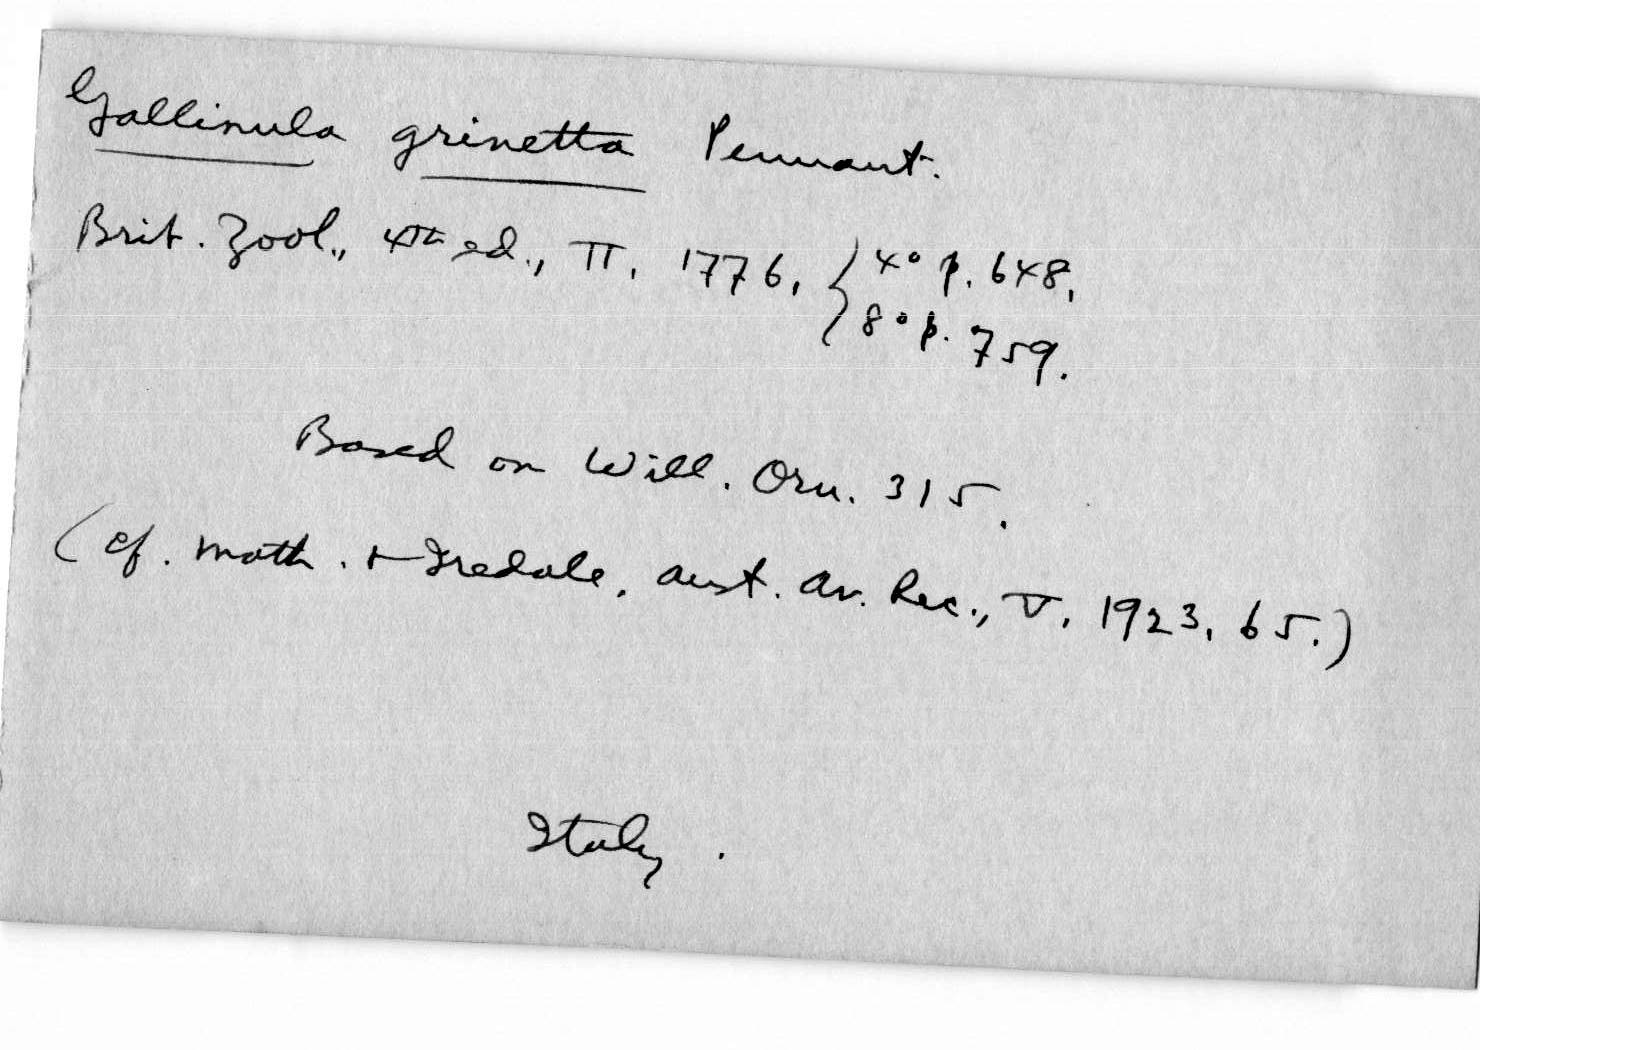 Gallinula grinetta Pennant.
Brit. Zool., 4th ed., II, 1776, { 4° p. 648,
8° p. 759.
Based on Will. Orn. 315.
(cf. Math. & Iredale, Aust. Av. Rec., V, 1923, 65.)
Italy.